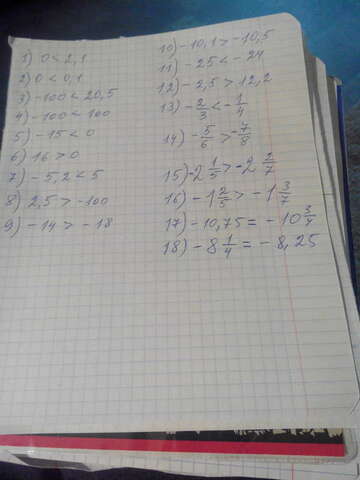 1) 0 < 2,1
2) 0 < 0,1
3) -100 < 20,5
4) -100 < 100
5) -15 < 0
6) 16 > 0
7) -5,2 < 5
8) 2,5 > -100
9) -14 > -18
10) -10,1 > -10,5
11) -25 < -24
12) -2,5 > 12,2
13) -2/3 < -1/4
14) -5/6 > -7/8
15) -2 1/5 > -2 2/7
16) -1 2/5 > -1 3/7
17) -10,75 = -10 3/4
18) -8 1/4 = -8,25